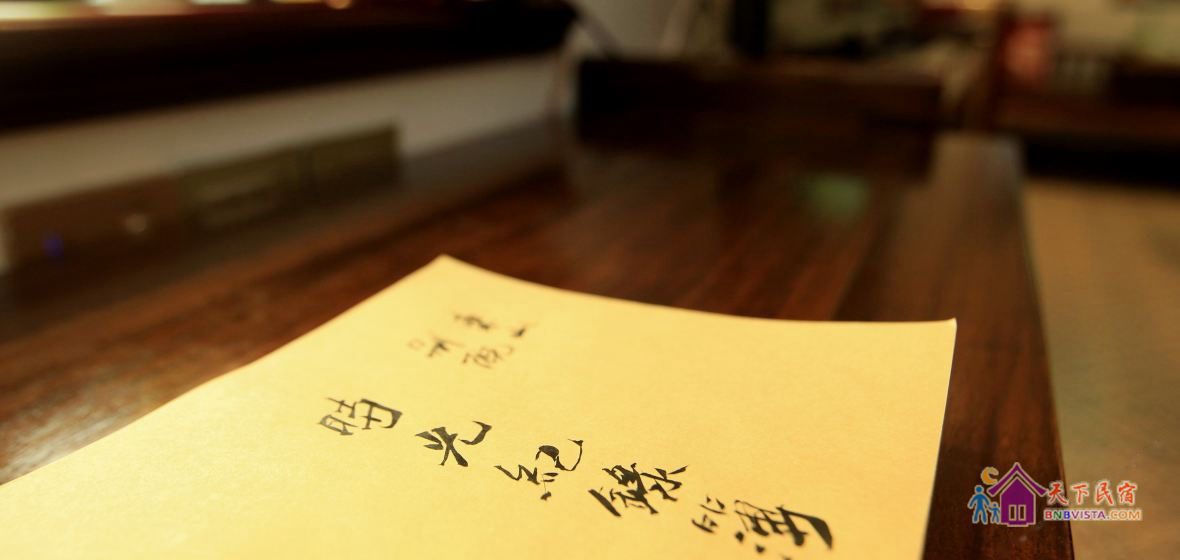 時光紀錄簿
天下民宿
BNBVISTA.COM